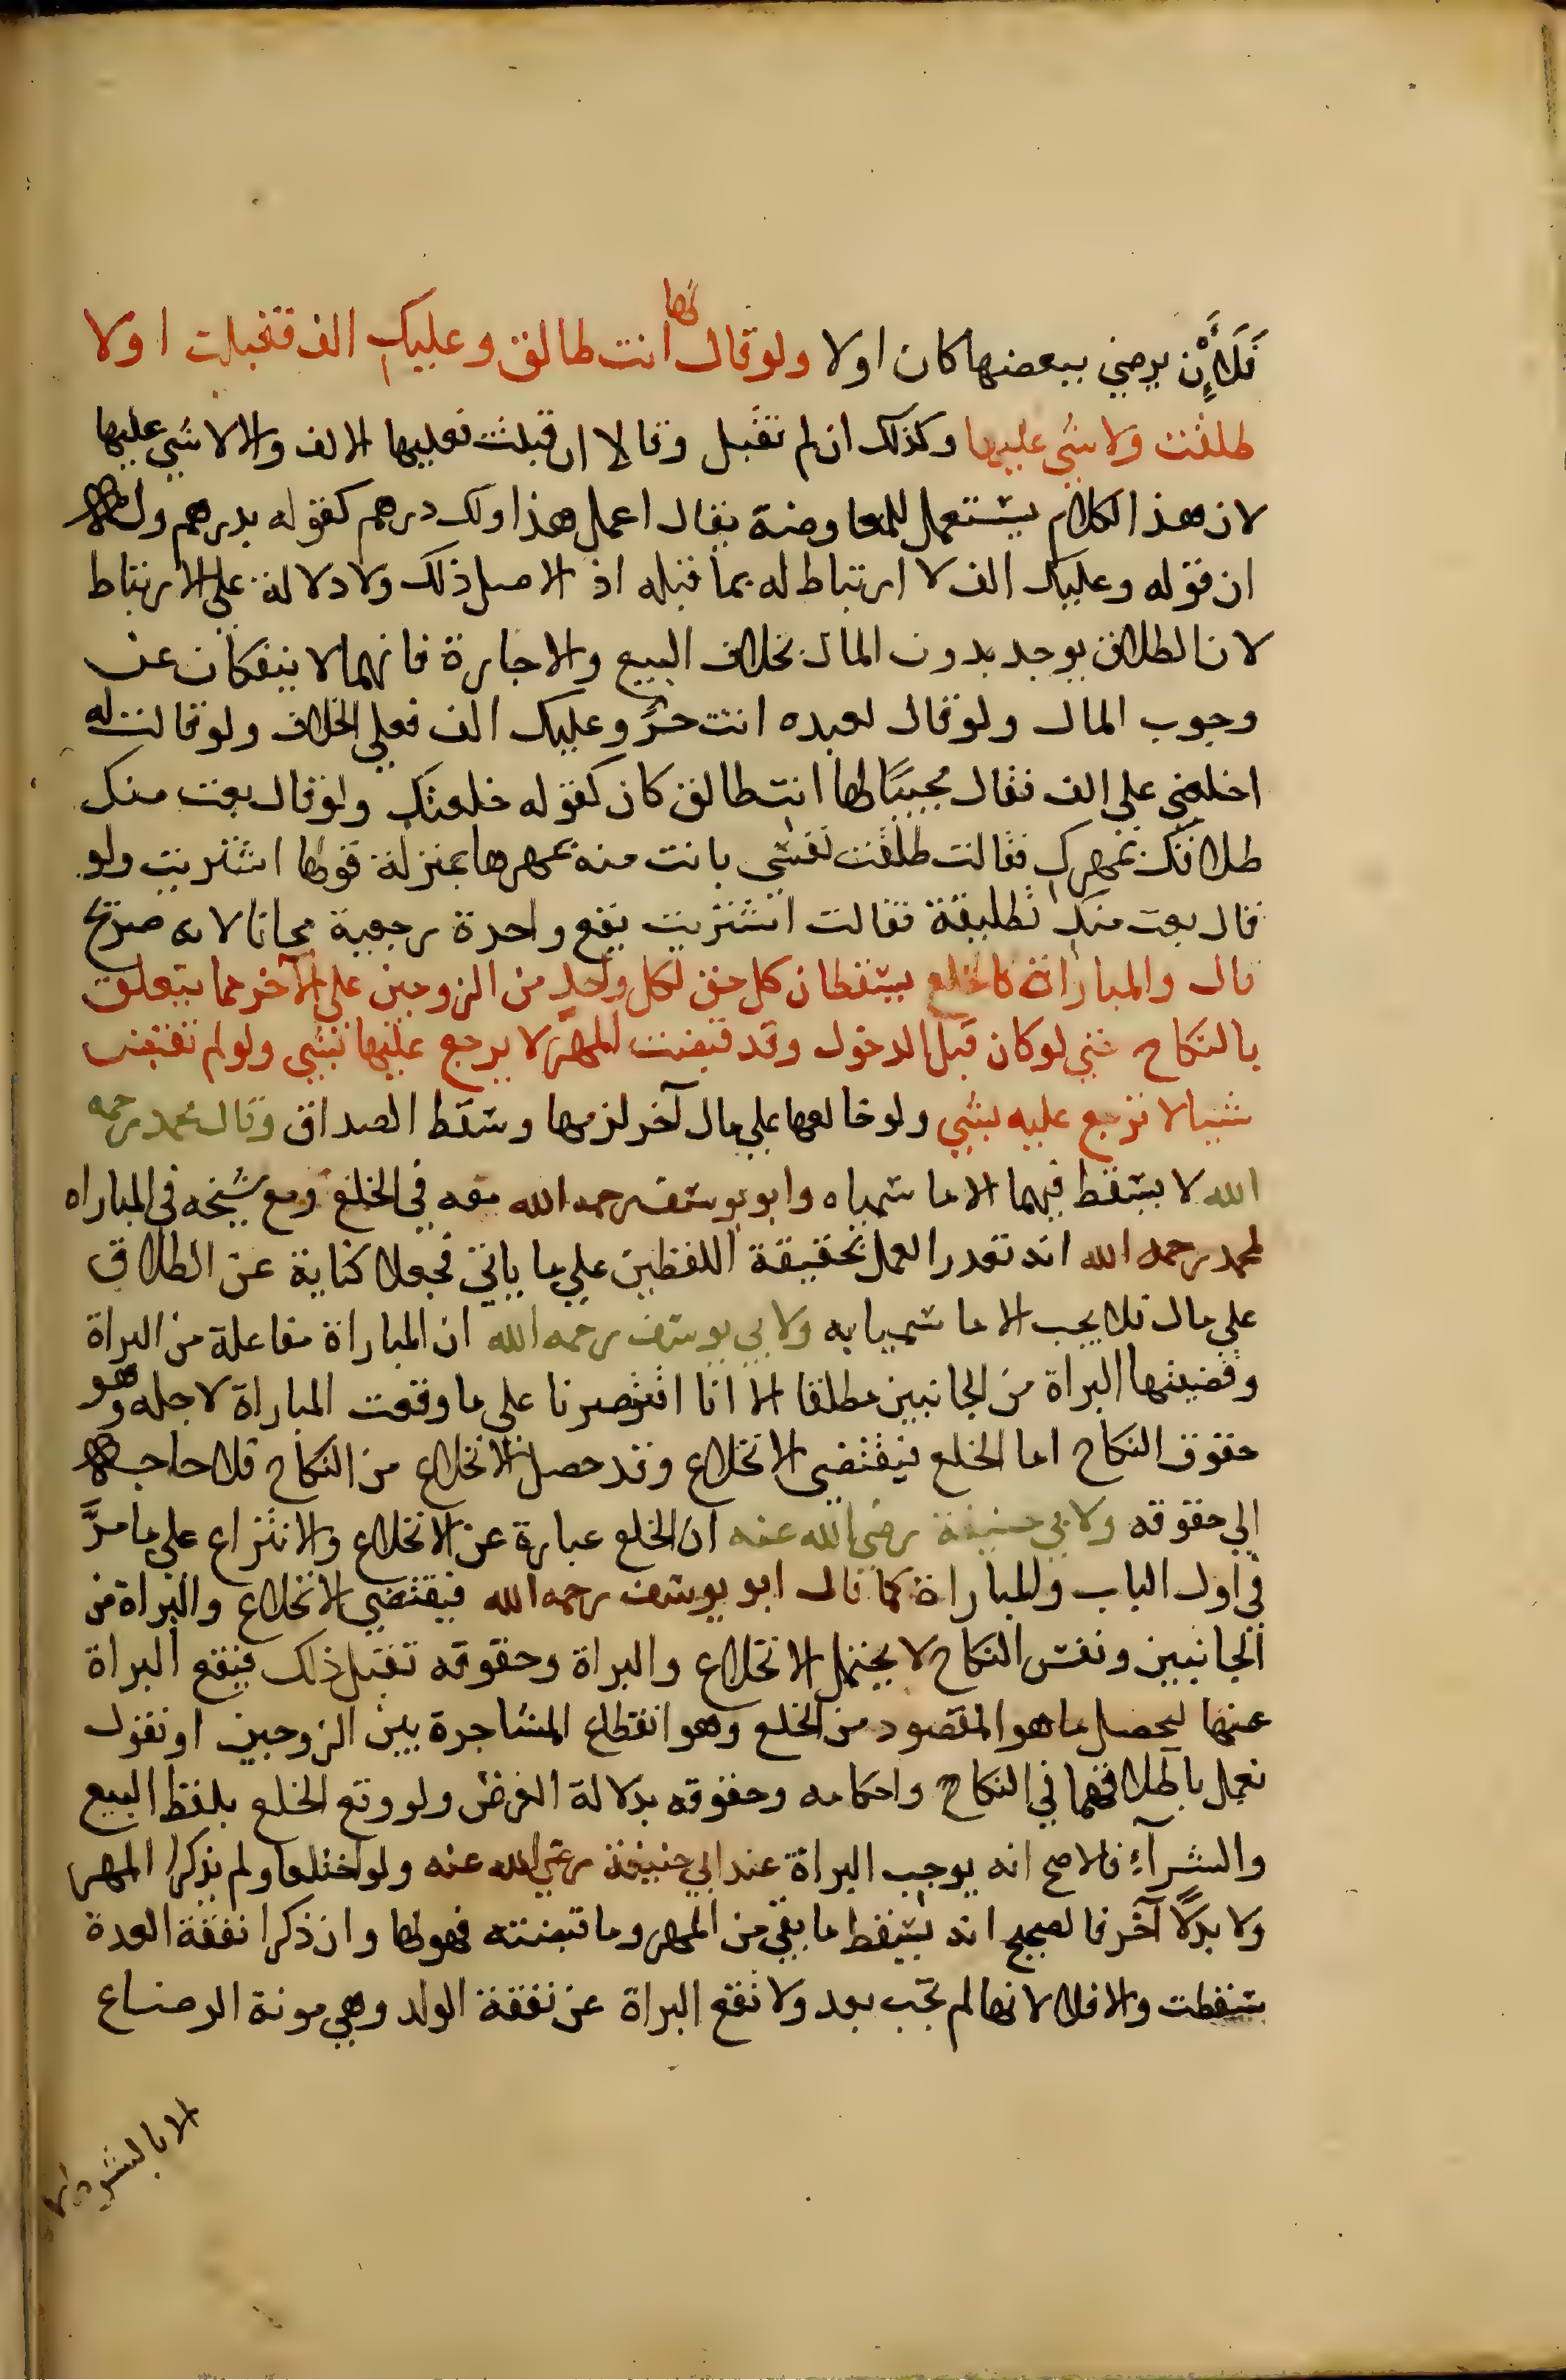 فَلَأَنْ يرضي ببعضها كان اولا ولو قال لها انت طالق وعليك الف فقبلت اولا
طلقت ولا شي عليها وكذلك ان لم تقبل وقالا ان قبلت فعليها الالف والا لا شي عليها
لان هذا الكلام يستعمل للمعاوضة يقال اعمل هذا ولك درهم كقوله بدرهم وله
ان قوله وعليك الف لا ارتباط له بما قبله اذ الاصل ذلك ولا دلالة علي الارتباط
لان الطلاق يوجد بدون المال بخلاف البيع والاجارة فانهما لا ينفكان عن
وجوب المال ولو قال لعبده انت حرٌّ وعليك الف فعلي الخلاف ولو قالت له
اخلعني علي الف فقال مجيبًا لها انت طالق كان كقوله خلعتك ولو قال بعت منك
طلاقك بمهرك فقالت طلقت نفسي بانت منه بمهرها بمنزلة قولها اشتريت ولو
قال بعت منك تطليقة فقالت اشتريت يقع واحدة رجعية مجانا لانه صريح
قال والمباراة كالخلع يسقطان كل حق لكل واحد من الزوجين علي الآخر مما يتعلق
بالنكاح حتي لو كان قبل الدخول وقد قبضت المهر لا يرجع عليها بشي ولو لم تقبض
شيا لا ترجع عليه بشي ولو خالعها علي مال آخر لزمها وسقط الصداق وقال محمد رحمه
الله لا يسقط فيهما الا ما سمياه وابو يوسف رحمه الله معه في الخلع ومع شيخه في المباراه
لمحمد رحمه الله انه تعذر العمل بحقيقة اللفظين علي ما ياتي فجعلا كناية عن الطلاق
علي مال فلا يجب الا ما سميا به ولابي يوسف رحمه الله ان المباراة مفاعلة من البراة
وقضيتها البراة من الجانبين مطلقا الا انا اقتصرنا علي ما وقعت المباراة لاجله وهو
حقوق النكاح اما الخلع فيقتضي الانخلاع وقد حصل الانخلاع من النكاح فلا حاجة
الي حقوقه ولابي حنيفة رضي الله عنه ان الخلع عبارة عن الانخلاع والانتزاع علي ما مرَّ
في اول الباب والمباراة كما قال ابو يوسف رحمه الله فيقتضي الانخلاع والبراة من
الجانبين ونفس النكاح لا يحتمل الانخلاع والبراة وحقوقه تقبل ذلك فيقع البراة
عنها ليحصل ما هو المقصود من الخلع وهو انقطاع المشاجرة بين الزوجين او نقول
نعمل باطلاقهما في النكاح واحكامه وحقوقه بدلالة الغرض ولو وقع الخلع بلفظ البيع
والشرآءِ فالاصح انه يوجب البراة عند ابي حنيفة رضي الله عنه ولو اختلعا ولم يذكرا المهر
ولا بدلًا آخر فالصحيح انه يسقط ما بقي من المهر وما قبضته فهو لها وان ذكرا نفقة العدة
سقطت والا فلا لانها لم تجب بعد ولا تقع البراة عن نفقة الولد وهي مونة الرضاع
الا بالشرط